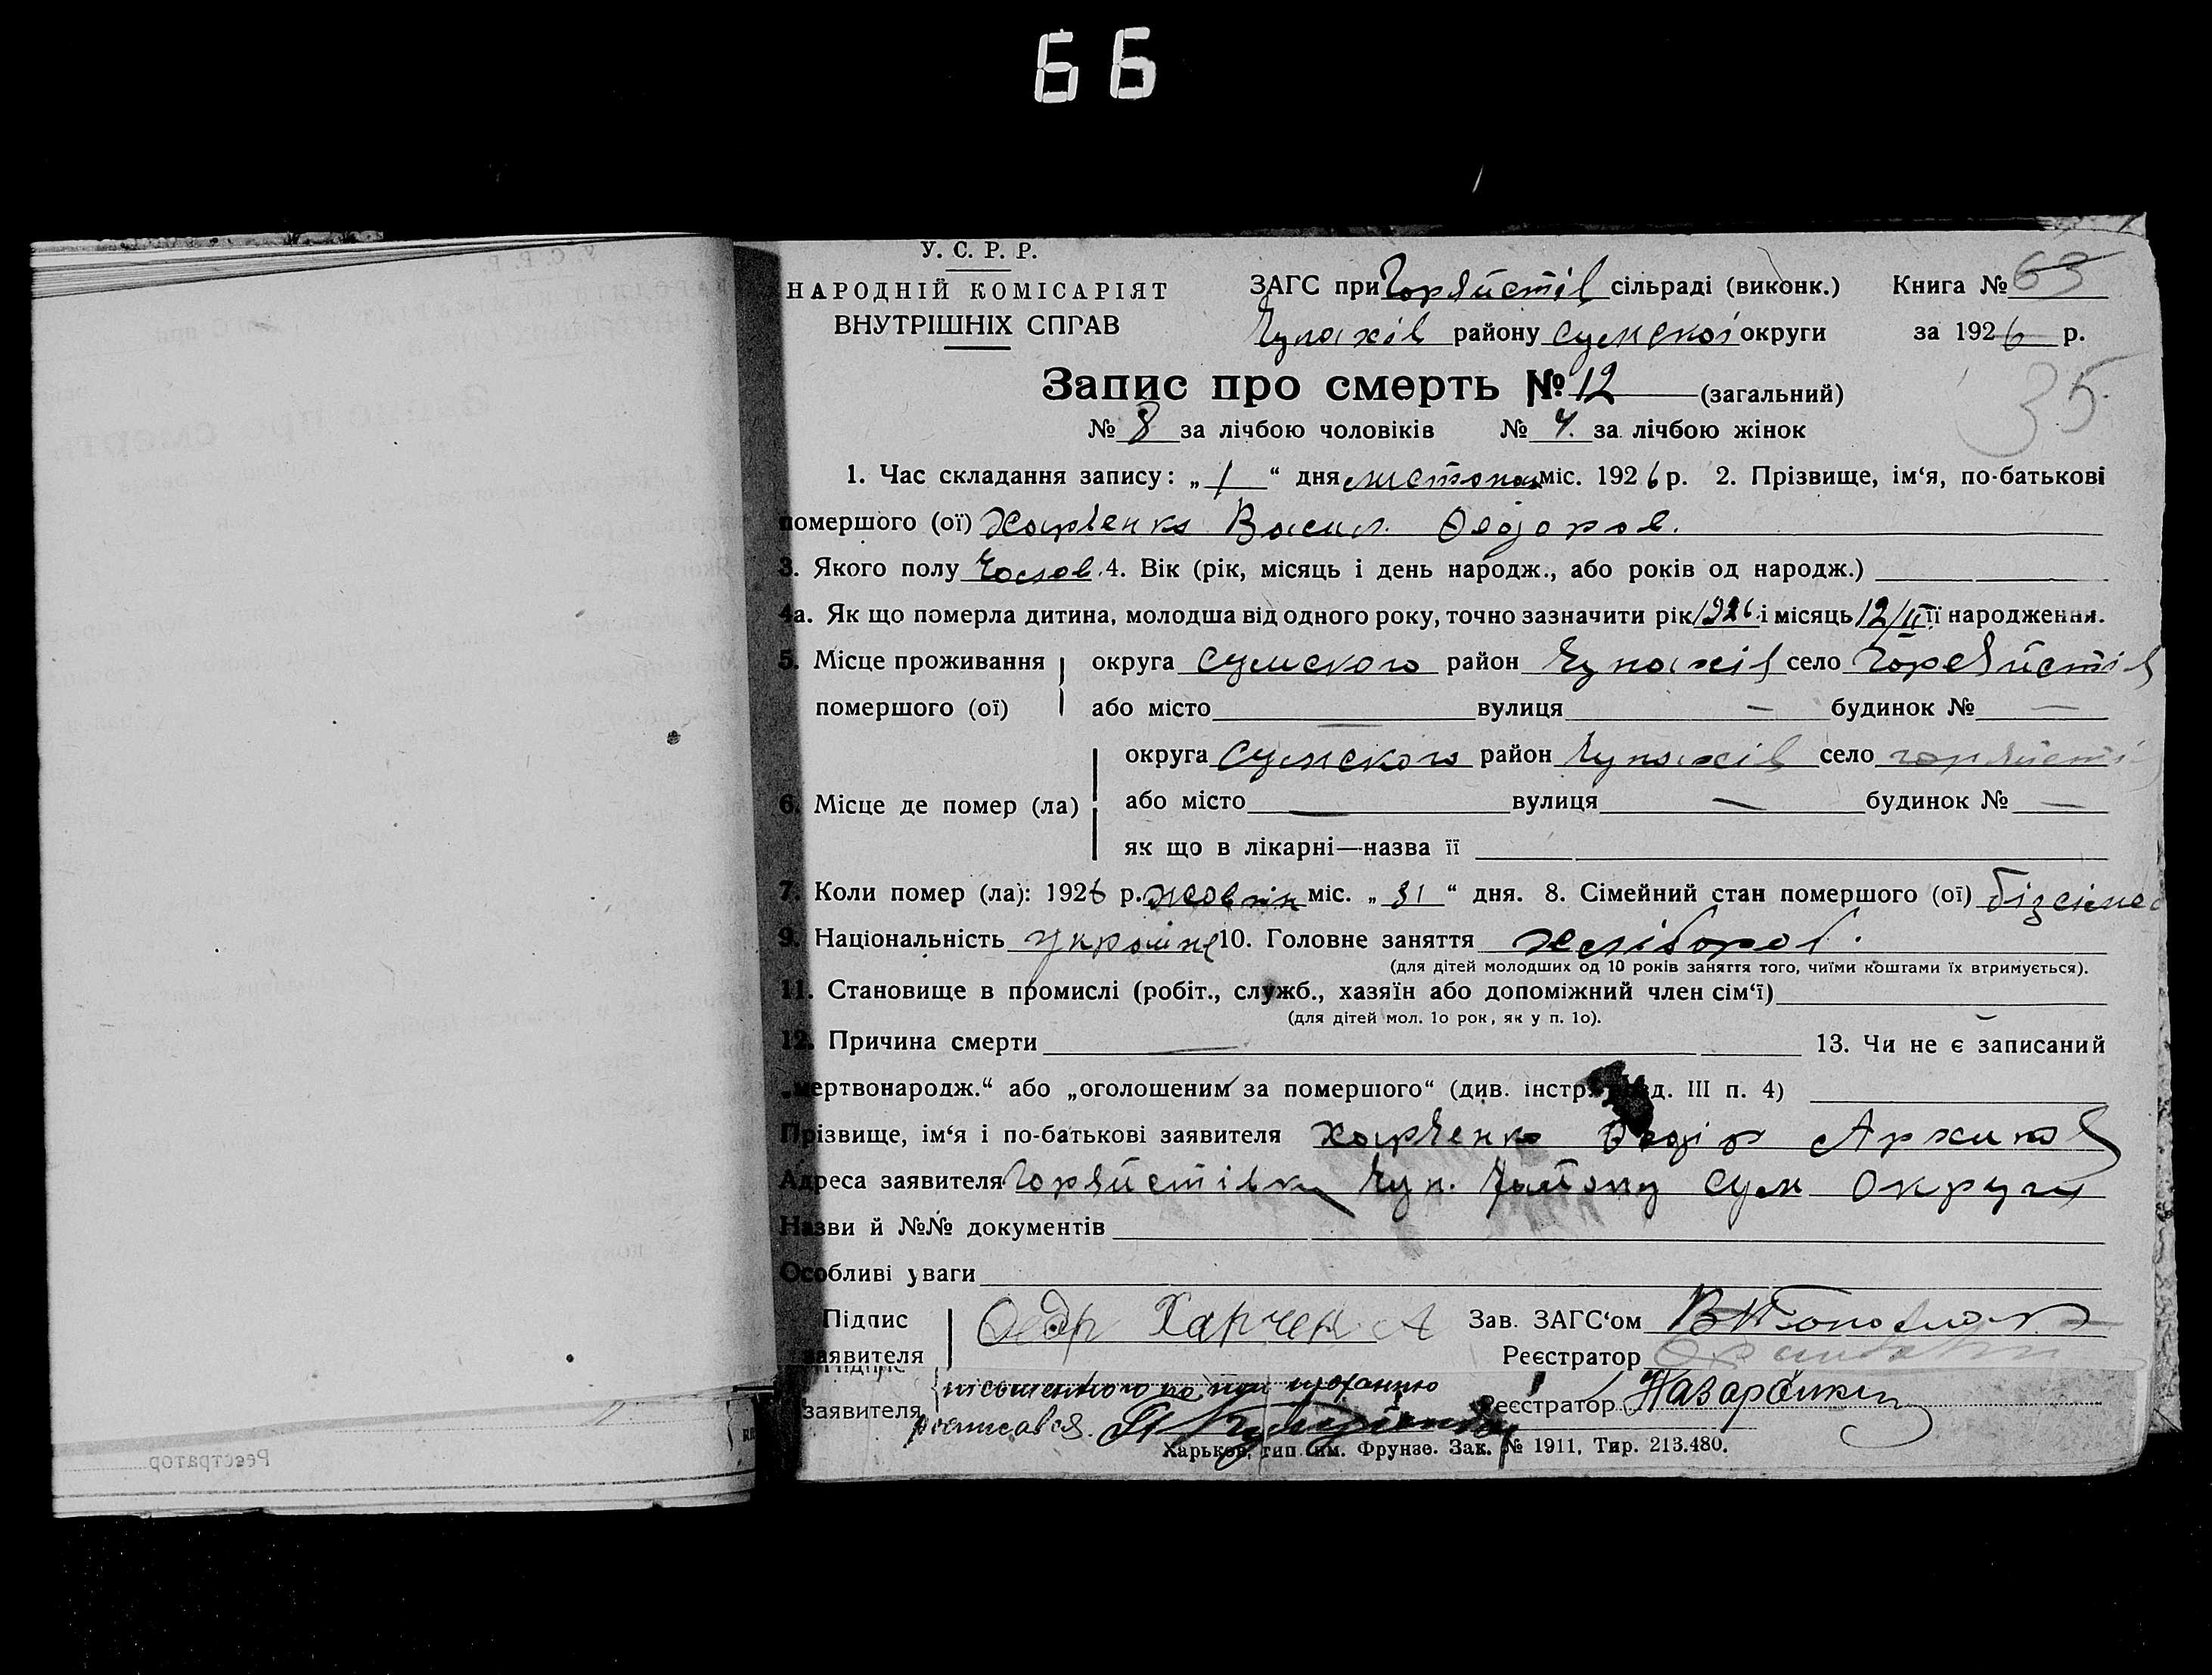 66
У. С. Р. Р.
НАРОДНІЙ КОМІСАРІЯТ
ВНУТРІШНІХ СПРАВ
ЗАГС при сільраді (виконк.) Книга № 63
Чупахів району Сумскоі округи за 1926 р.
35
Запис про смерть № 12 (загальний)
№ 8 за лічбою чоловіків № 4. за лічбою жінок
1. Час складання запису: „ 1 “ дня листопад міс. 1926 р. 2. Прізвище, ім‘я, по-батькові
помершого (ої) Харченко Васил. Федоров.
3. Якого полу Чолов. 4. Вік (рік, місяць і день народж., або років од народж.)
4а. Як що померла дитина, молодша від одного року, точно зазначити рік 1926 і місяць 12/II її народження.
5. Місце проживання округа Сумского район Чупахів село
помершого (ої) або місто — вулиця — будинок № —
округа Сумского район Чупахів село
6. Місце де помер (ла) або місто — вулиця — будинок № —
як що в лікарні—назва її
7. Коли помер (ла): 1926 р. жовтн міс. „ 31 “ дня. 8. Сімейний стан помершого (ої)
9. Національність 10. Головне заняття хлібороб.
(для дітей молодших од 10 років заняття того, чиїми коштами їх втримується).
11. Становище в промислі (робіт., служб., хазяїн або допоміжний член сім‘ї)
(для дітей мол. 1о рок, як у п. 1о).
12. Причина смерти — 13. Чи не є записаний
„мертвонародж.“ або „оголошеним за помершого“ (див. інстр. д. III п. 4)
Прізвище, ім‘я і по-батькові заявителя Харченко Федір Архипов
Адреса заявителя Чуп. Району Сум Округи
Назви й №№ документів
Особливі уваги
Підпис заявителя Федр Харчен А Зав. ЗАГС‘ом
Реєстратор
заявителя росписався. Реєстратор
Харьков, тип. им. Фрунзе. Зак. № 1911. Тир. 213.480.
Реєстратор